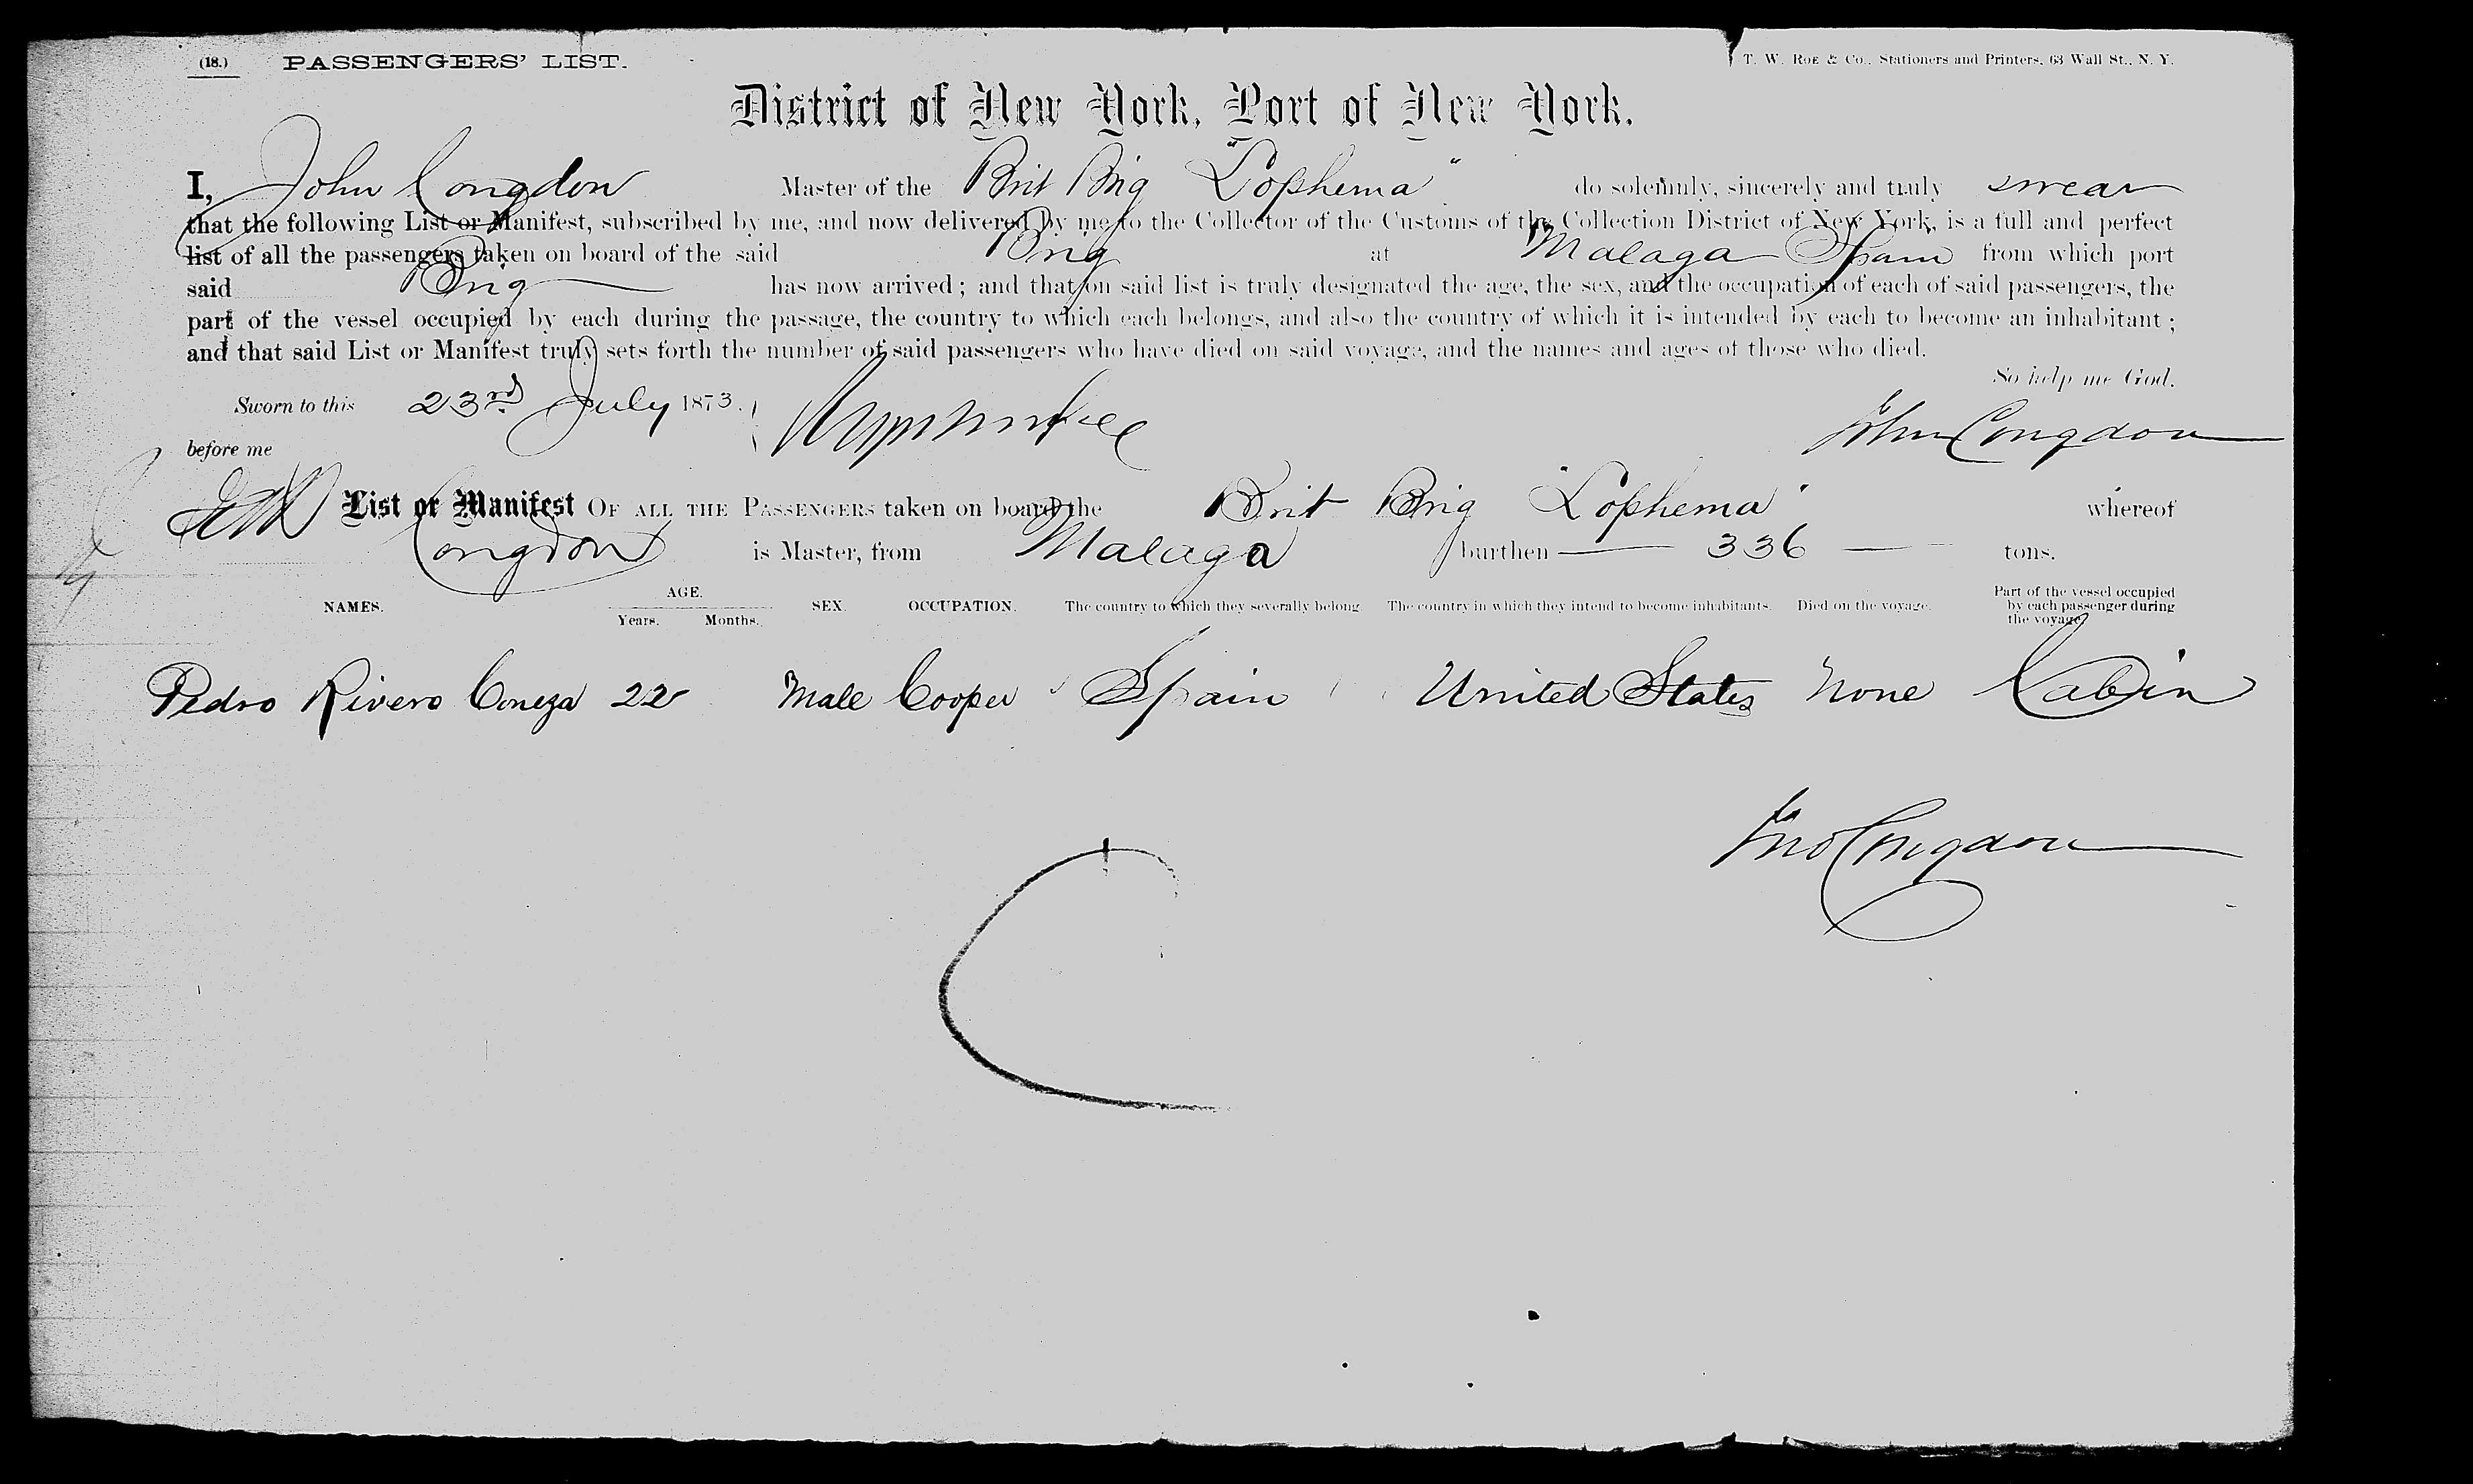 (18.) PASSENGERS' LIST. T. W. Roe & Co., Stationers and Printers, 63 Wall St., N. Y.
District of New York, Port of New York.
I, John Congdon Master of the Brit Brig "Lophema" do solemnly, sincerely and truly swear
that the following List or Manifest, subscribed by me, and now delivered by me to the Collector of the Customs of the Collection District of New York, is a full and perfect
list of all the passengers taken on board of the said Brig at Malaga Spain from which port
said Brig has now arrived; and that on said list is truly designated the age, the sex, and the occupation of each of said passengers, the
part of the vessel occupied by each during the passage, the country to which each belongs, and also the country of which it is intended by each to become an inhabitant;
and that said List or Manifest truly sets forth the number of said passengers who have died on said voyage, and the names and ages of those who died.
So help me God.
Sworn to this 23rd July 1873.
John Congdon
before me
List or Manifest OF ALL THE PASSENGERS taken on board the Brit Brig "Lophema" whereof
Congdon is Master, from Malaga burthen 336 tons.
NAMES. AGE. Years. Months. SEX. OCCUPATION. The country to which they severally belong The country in which they intend to become inhabitants. Died on the voyage. Part of the vessel occupied by each passenger during the voyage
Pedro Rivero 22 Male Cooper Spain United States None Cabin
Jno Congdon